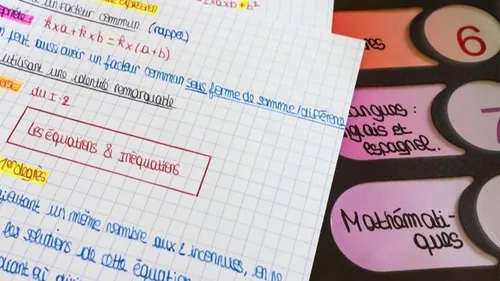 un facteur commun (rappel)
k×a + k×b = k×(a+b)
peut aussi avoir un facteur commun sous forme de somme/différence
utilisant une identité remarquable
du I-2
Les équations & Inéquations
ajoutant un même nombre aux 2 inconnues, on ne
les solutions de cette équation
6
7
langues :
anglais et
espagnol.
Mathémati-
ques